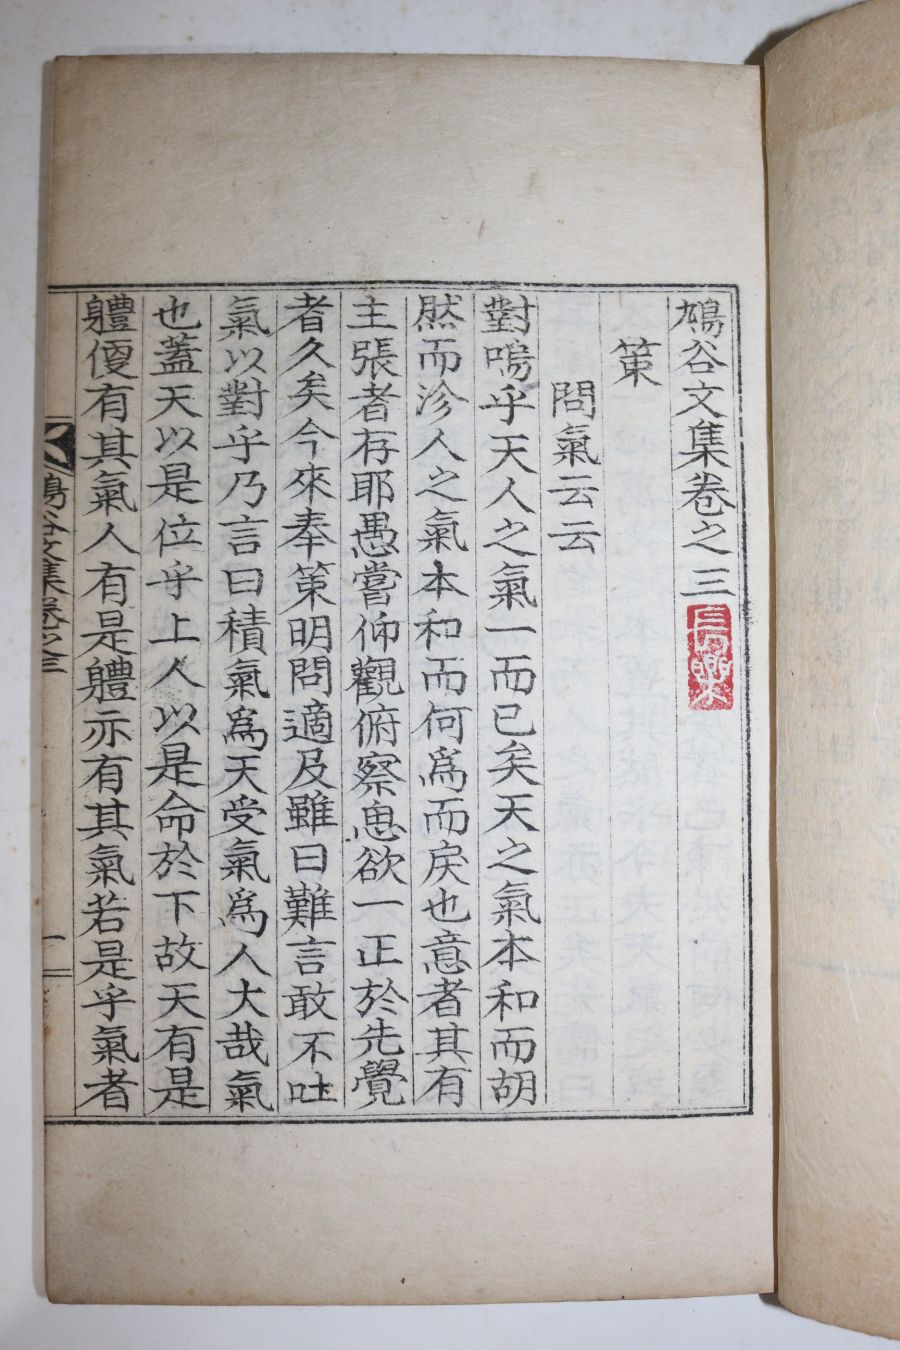 鳩谷文集卷之三
長樂
策
問氣云云
對嗚乎天人之氣一而已矣天之氣本和而胡
然而沴人之氣本和而何爲而戾也意者其有
主張者存耶愚嘗仰觀俯察思欲一正於先覺
者久矣今來奉策明問適及雖曰難言敢不吐
氣以對乎乃言曰積氣爲天受氣爲人大哉氣
也蓋天以是位乎上人以是命於下故天有是
軆便有其氣人有是軆亦有其氣若是乎氣者
鳩谷文集卷之三
一